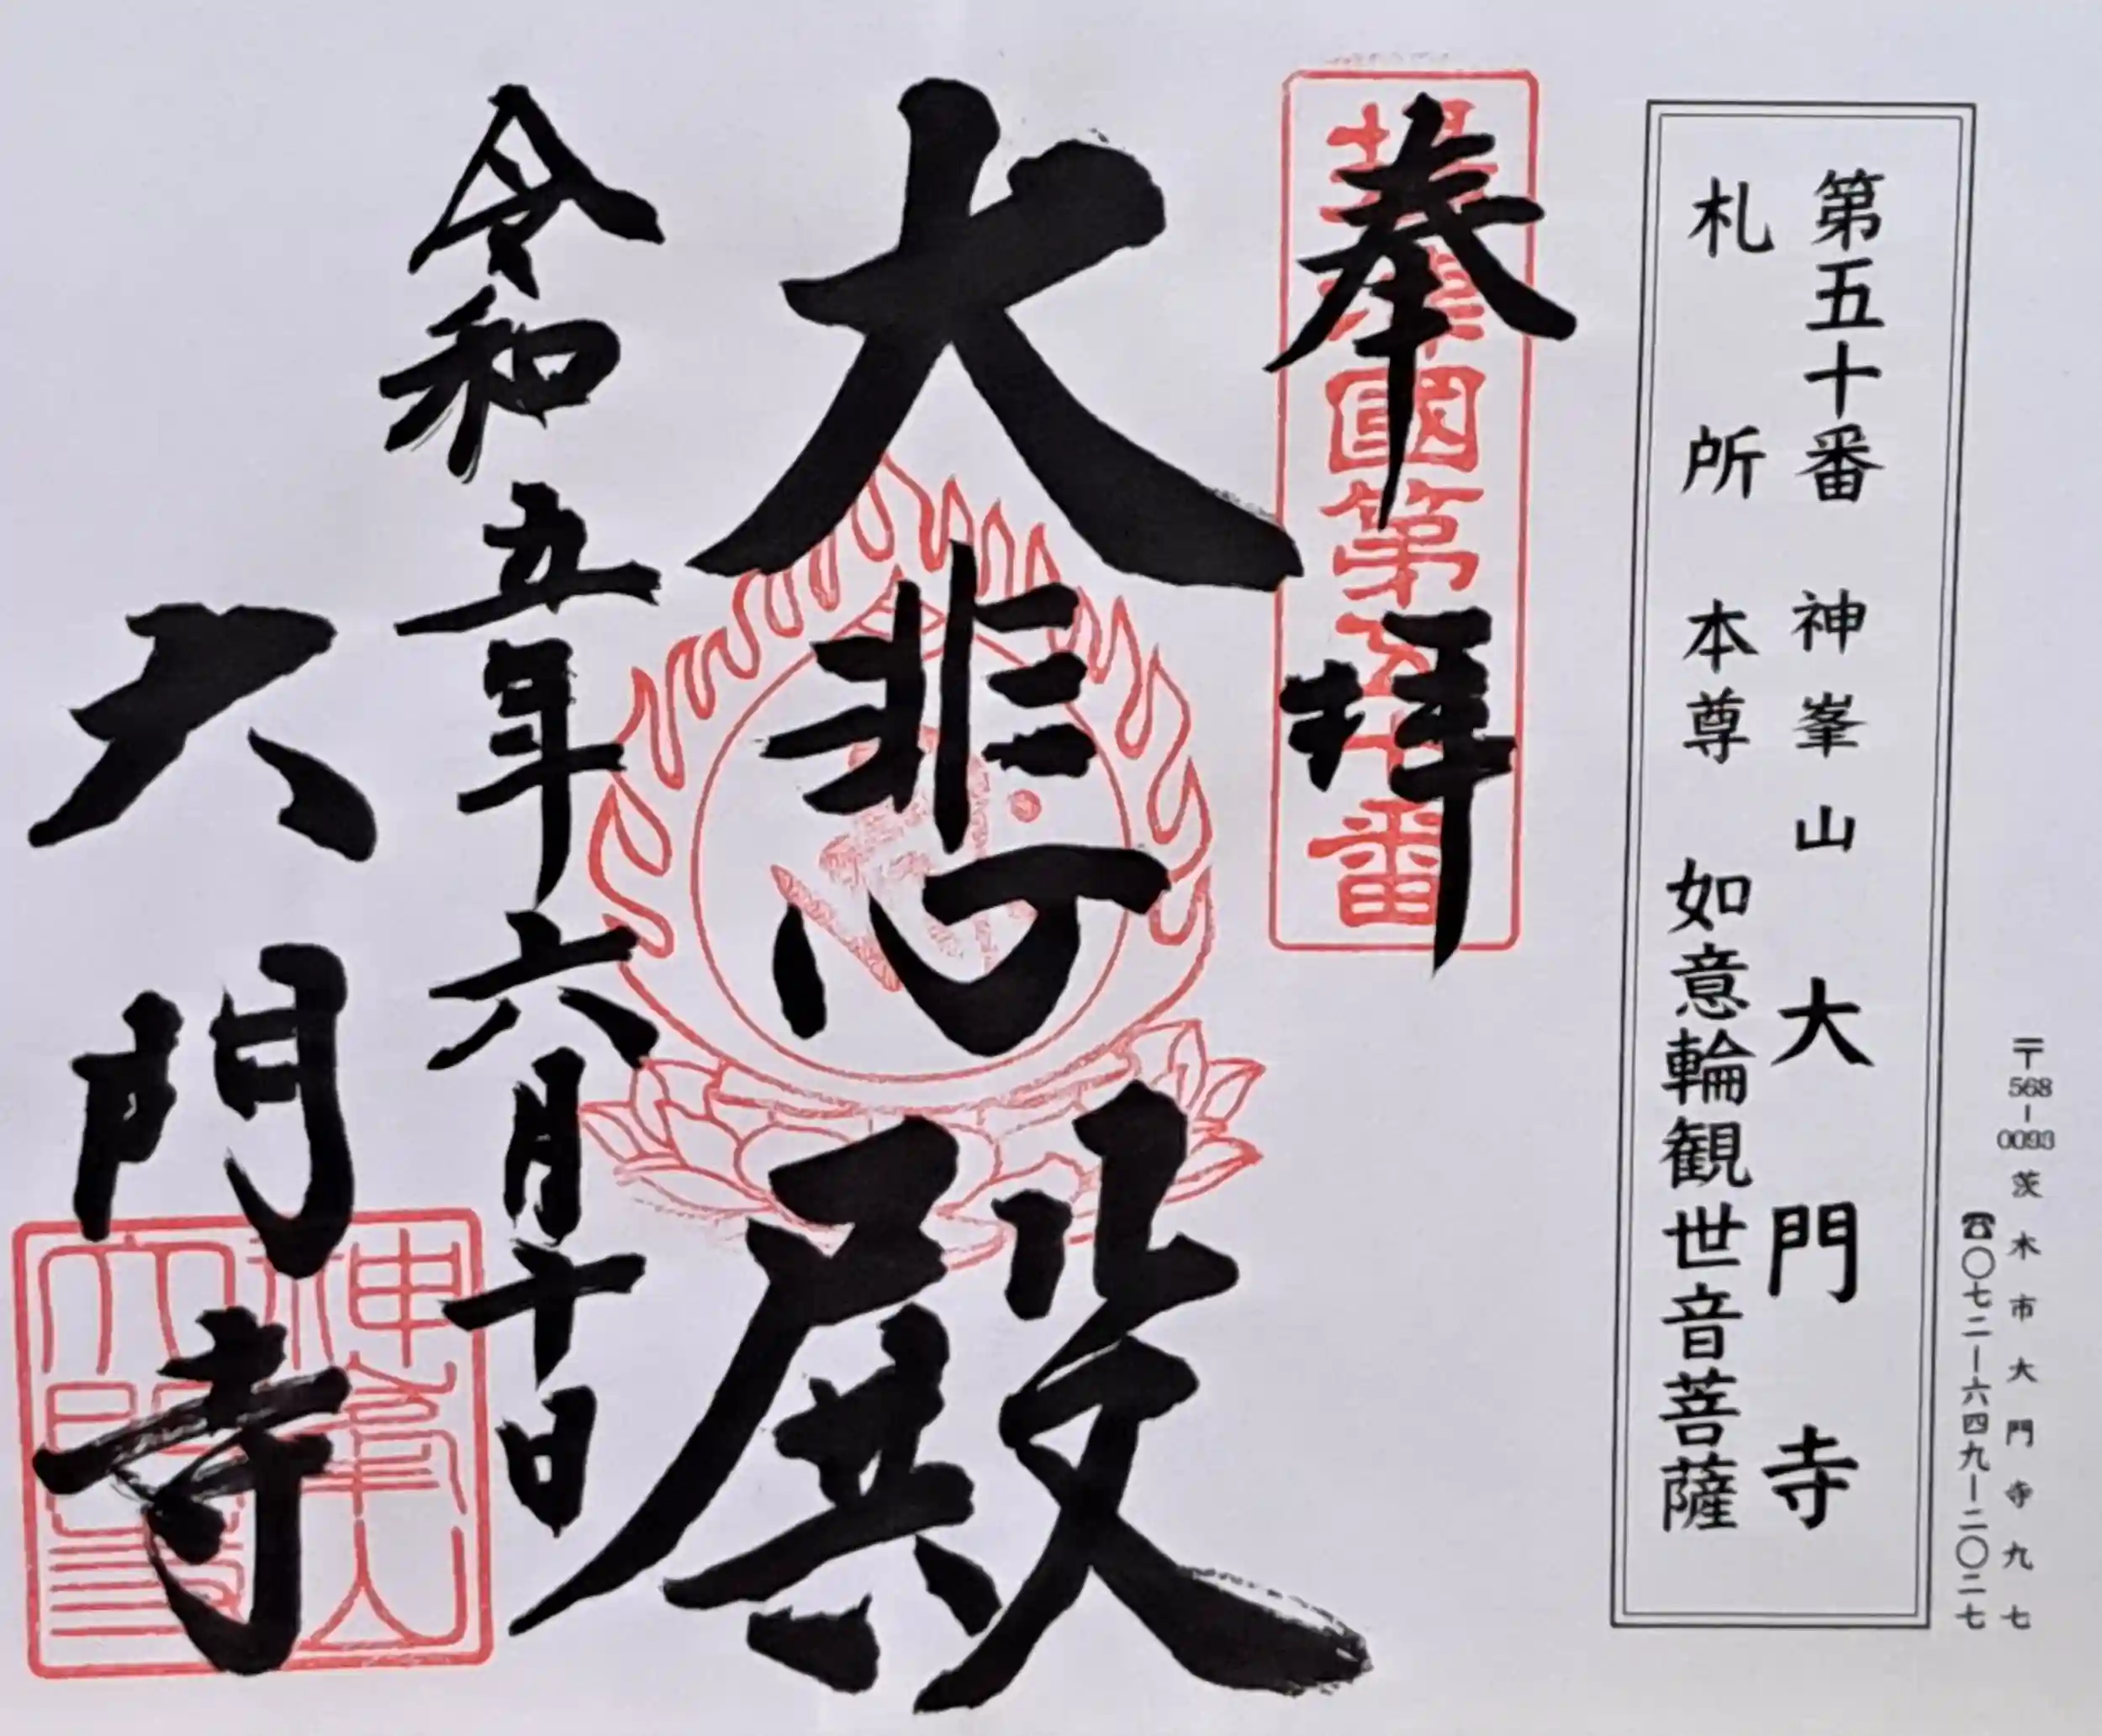 〒568-0093 茨木市大門寺九七
☎〇七二-六四九-二〇二七
第五十番 神峯山 大門寺
札所本尊 如意輪観世音菩薩
奉拝
摂津國第五十番
大悲殿
令和五年六月十日
大門寺
神峯山
大門寺